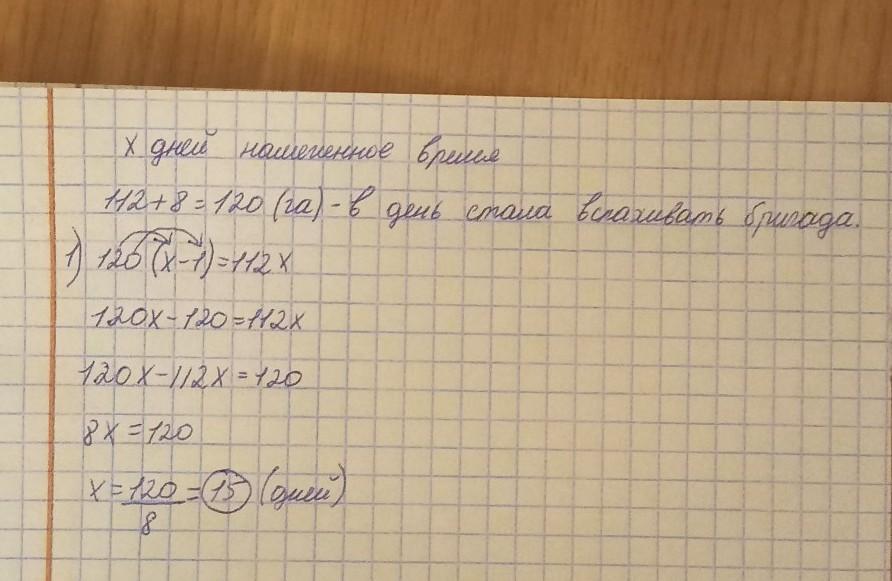 х дней намеченное время
112+8=120 (га) - в день стала вспахивать бригада.
1) 120(х-1)=112х
120х-120=112х
120х-112х=120
8х=120
х=120/8=15 (дней)